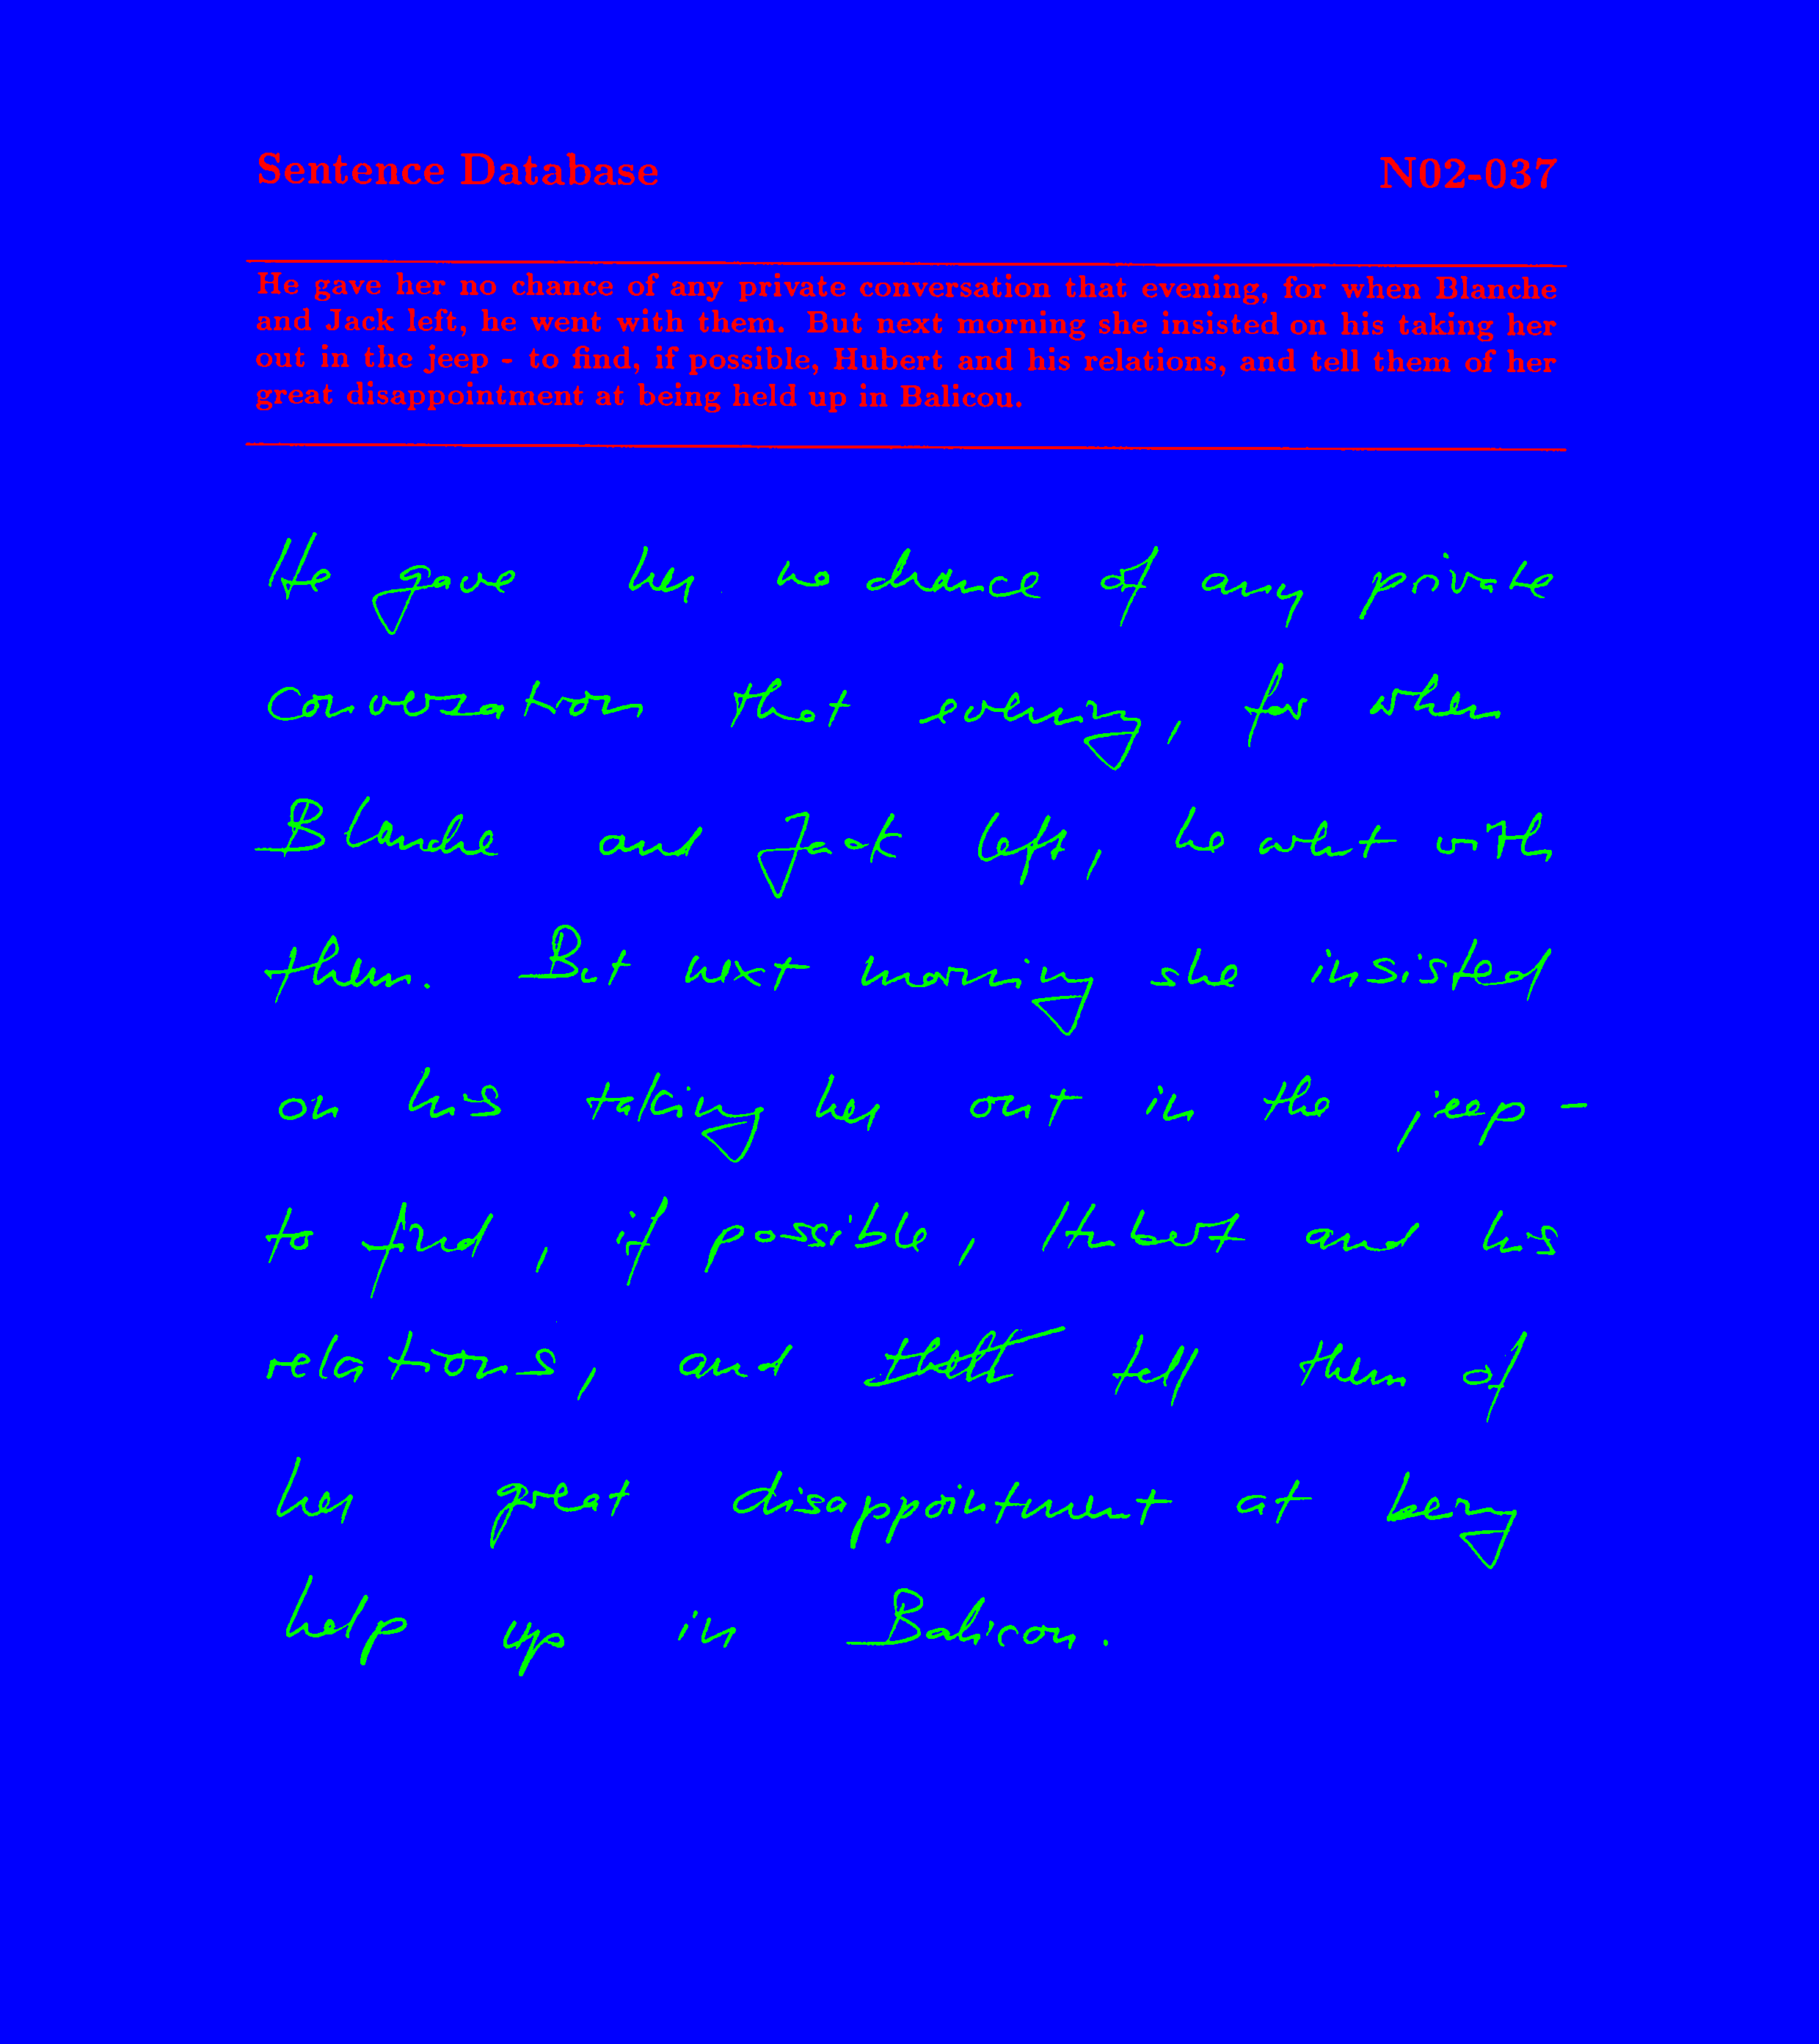 Sentence Database N02-037
He gave her no chance of any private conversation that evening, for when Blanche
and Jack left, he went with them. But next morning she insisted on his taking her
out in the jeep - to find, if possible, Hubert and his relations, and tell them of her
great disappointment at being held up in Balicou.
He gave her no chance of any private
conversation that evening, for when
Blanche and Jack left, he went with
them. But next morning she insisted
on his taking her out in the jeep -
to find, if possible, Hubert and his
relations, and tell them of
her great disappointment at being
help up in Balicou.